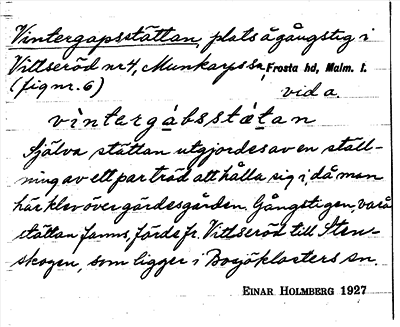 Vintergapsstättan, plats å gångstig i
Vittseröd nr 4, Munkarps sn, Frosta hd, Malm. l.
(fig nr. 6) vid a.
vìntergábsstǽtan
Själva stättan utgjordes av en ställ-
ning av ett par träd att hålla sig i, då man
här klev över gärdesgården. Gångstigen, varå
stättan fanns, förde fr. Vittseröd till Sten-
skogen, som ligger i Bosjöklosters sn.
EINAR HOLMBERG 1927